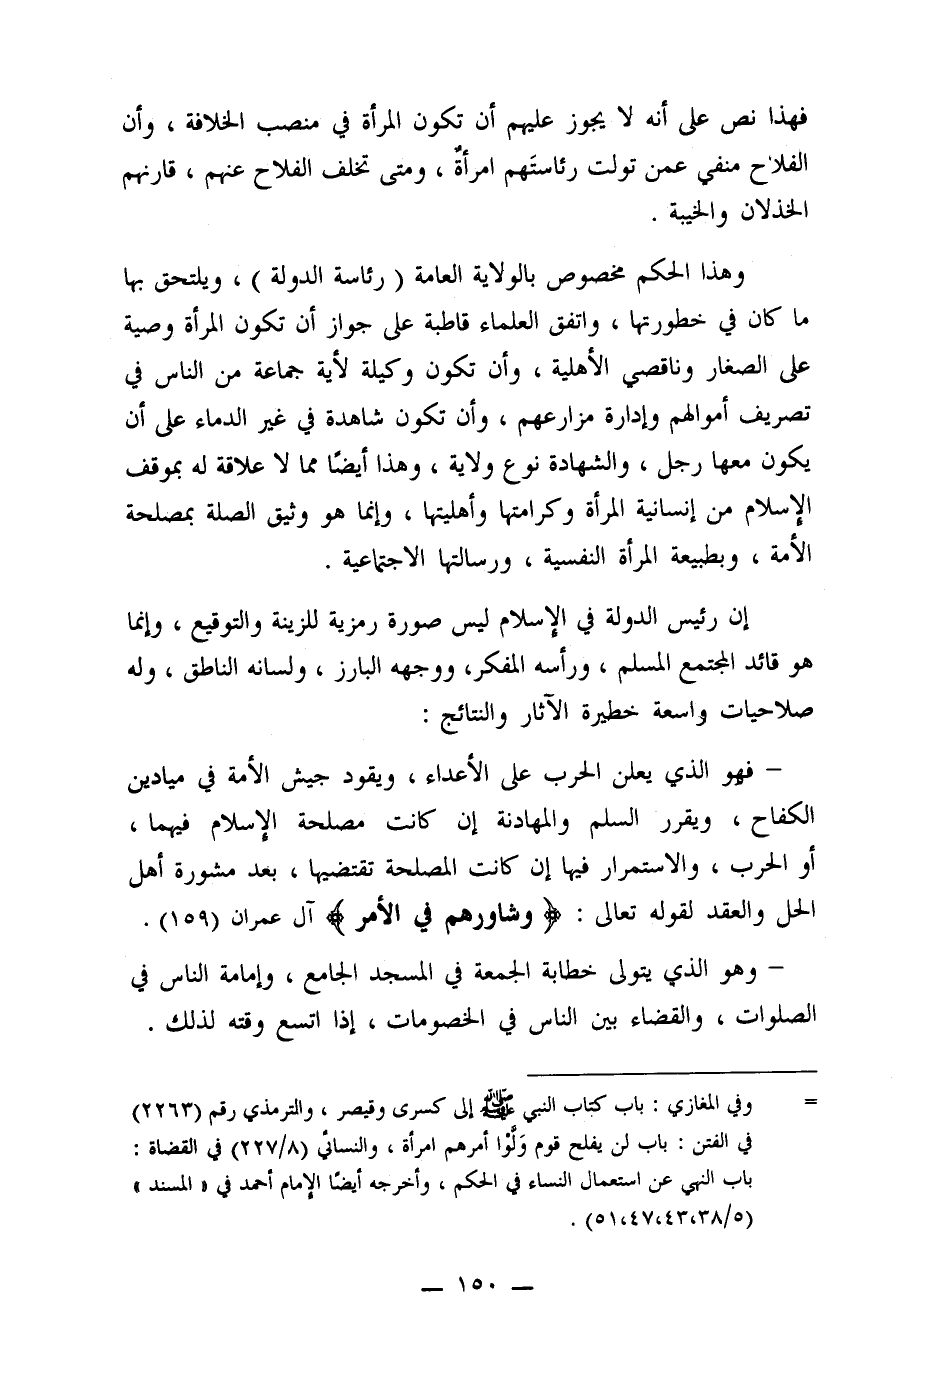 فهذا نص على أنه لا يجوز عليهم أن تكون المرأة في منصب الخلافة ، وأن
الفلاح منفي عمن تولت رئاستَهم امرأةٌ ، ومتى تخلف الفلاح عنهم ، قارنهم
الخذلان والخيبة .
وهذا الحكم مخصوص بالولاية العامة ( رئاسة الدولة ) ، ويلتحق بها
ما كان في خطورتها ، واتفق العلماء قاطبة على جواز أن تكون المرأة وصية
على الصغار وناقصي الأهلية ، وأن تكون وكيلة لأية جماعة من الناس في
تصريف أموالهم وإدارة مزارعهم ، وأن تكون شاهدة في غير الدماء على أن
يكون معها رجل ، والشهادة نوع ولاية ، وهذا أيضًا مما لا علاقة له بموقف
الإسلام من إنسانية المرأة وكرامتها وأهليتها ، وإنما هو وثيق الصلة بمصلحة
الأمة ، وبطبيعة المرأة النفسية ، ورسالتها الاجتماعية .
إن رئيس الدولة في الإسلام ليس صورة رمزية للزينة والتوقيع ، وإنما
هو قائد المجتمع المسلم ، ورأسه المفكر، ووجهه البارز ، ولسانه الناطق ، وله
صلاحيات واسعة خطيرة الآثار والنتائج :
– فهو الذي يعلن الحرب على الأعداء ، ويقود جيش الأمة في ميادين
الكفاح ، ويقرر السلم والمهادنة إن كانت مصلحة الإسلام فيهما ،
أو الحرب ، والاستمرار فيها إن كانت المصلحة تقتضيها ، بعد مشورة أهل
الحل والعقد لقوله تعالى : ﴿ وشاورهم في الأمر ﴾ آل عمران (١٥٩) .
– وهو الذي يتولى خطابة الجمعة في المسجد الجامع ، وإمامة الناس في
الصلوات ، والقضاء بين الناس في الخصومات ، إذا اتسع وقته لذلك .
= وفي المغازي : باب كتاب النبي ﷺ إلى كسرى وقيصر ، والترمذي رقم (٢٢٦٣)
في الفتن : باب لن يفلح قوم وَلَّوْا أمرهم امرأة ، والنسائي (٢٢٧/٨) في القضاة :
باب النهي عن استعمال النساء في الحكم ، وأخرجه أيضًا الإمام أحمد في « المسند »
(٥١،٤٧،٤٣،٣٨/٥) .
— ١٥٠ —